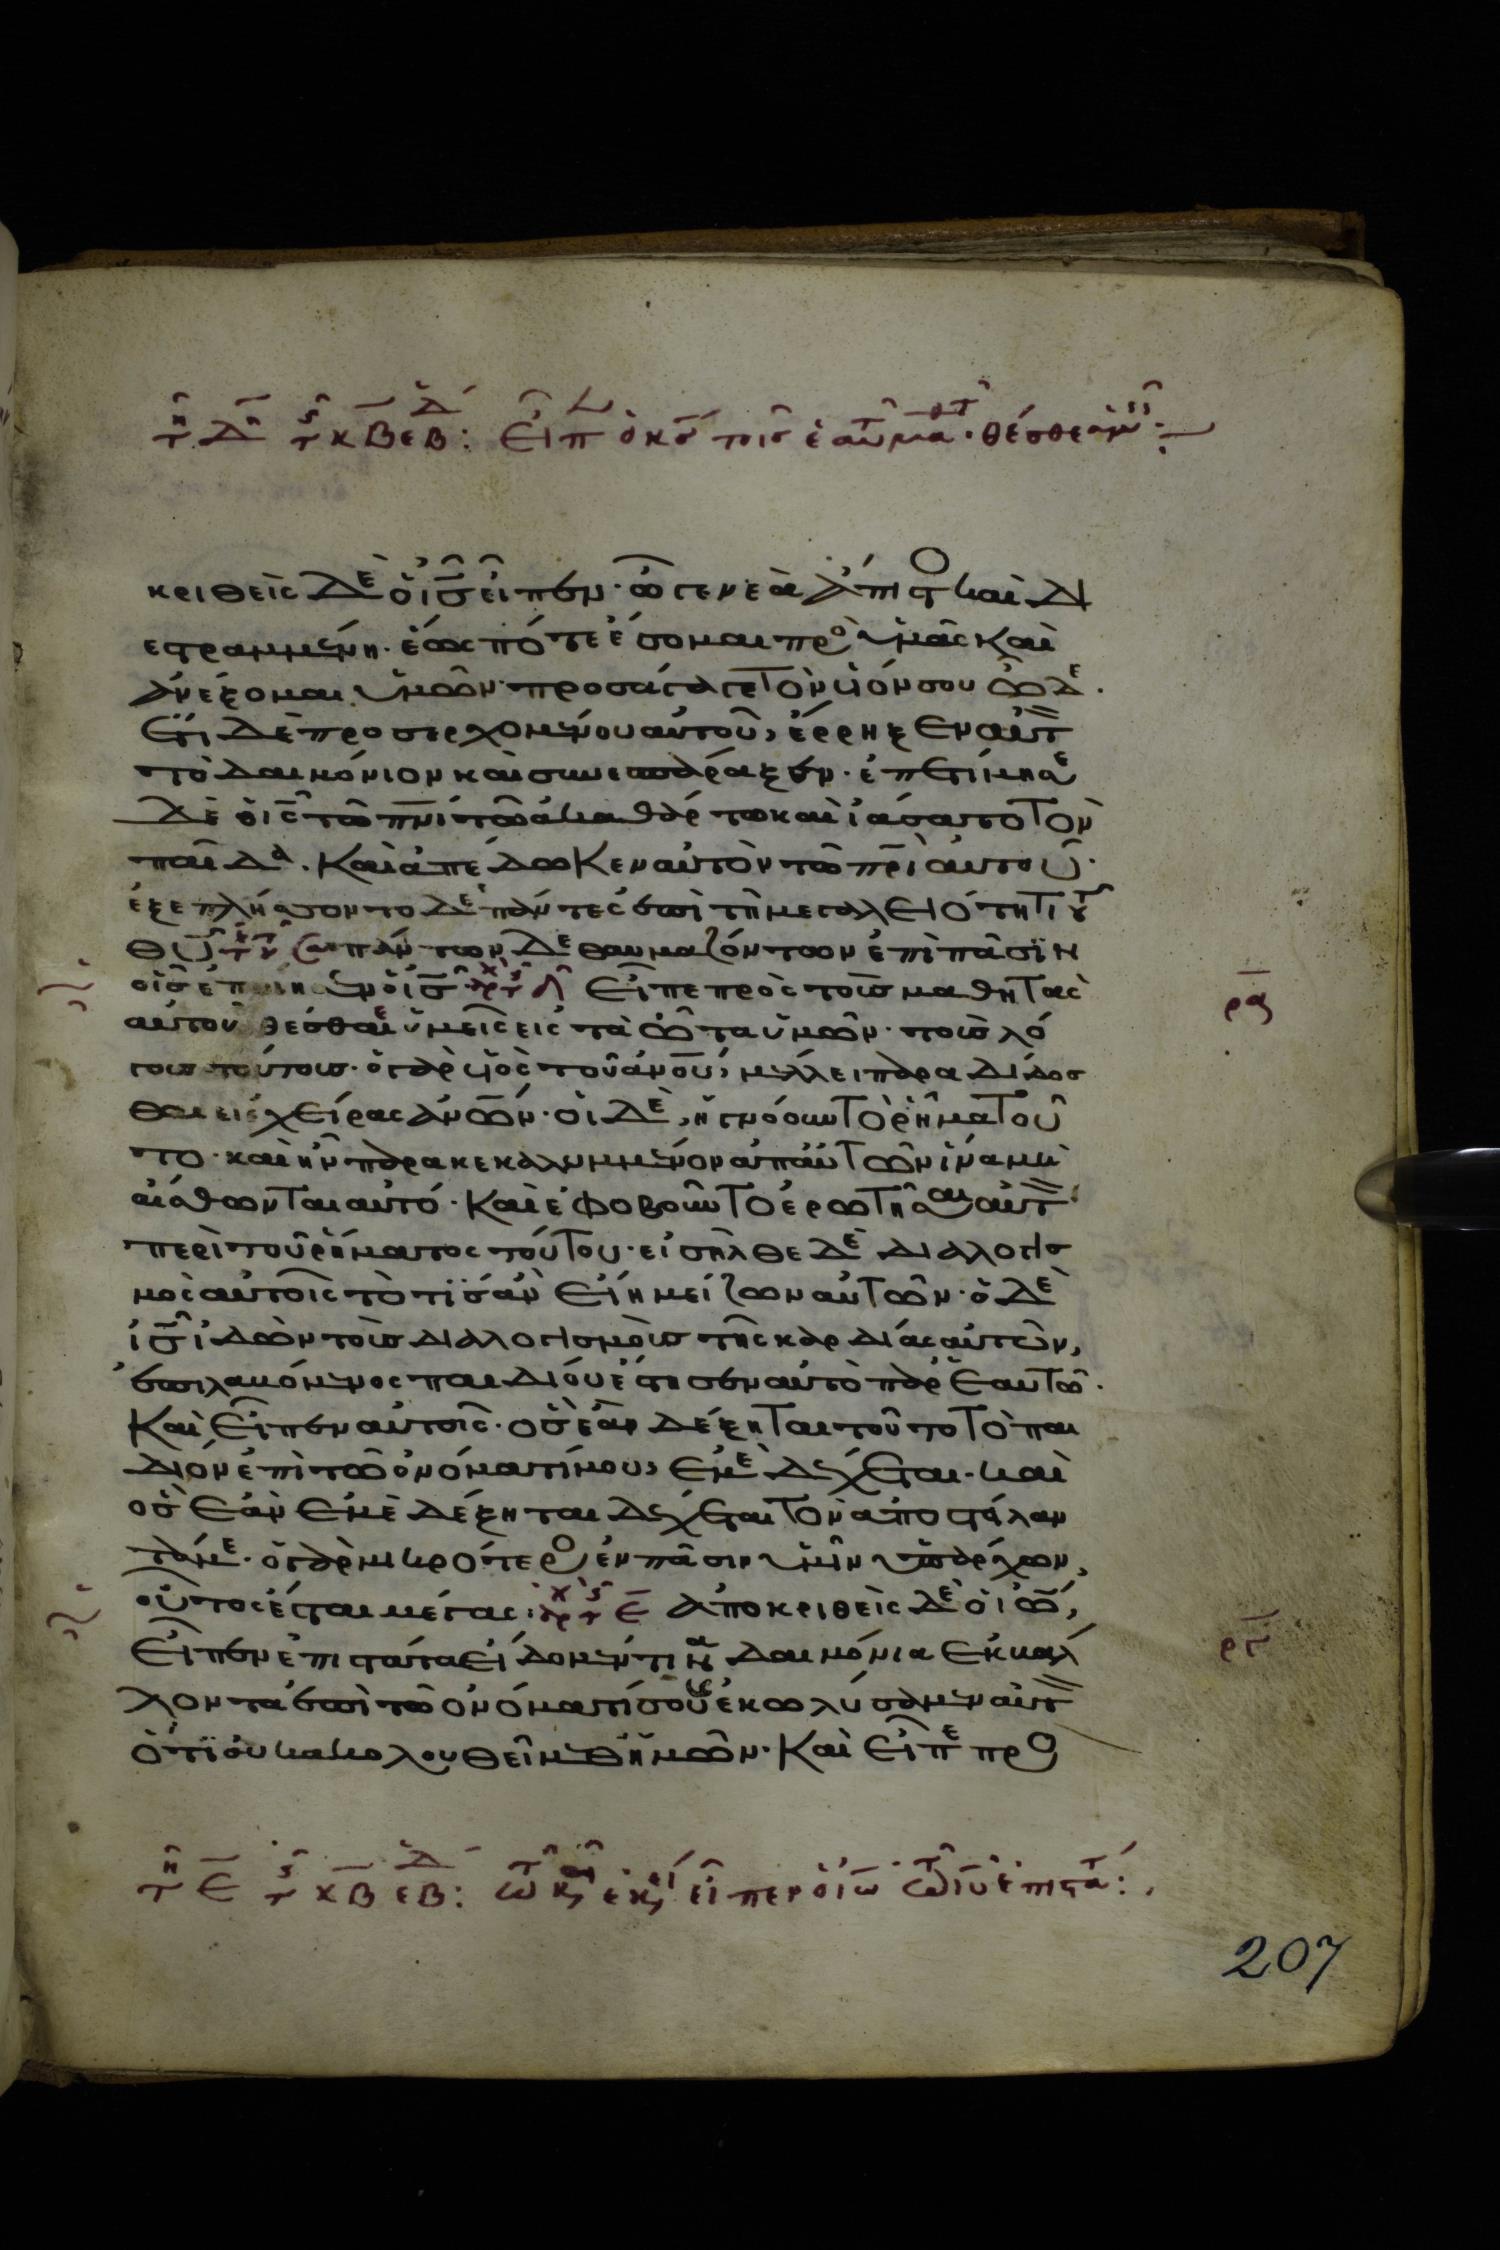 τῆ δ τῆς κβ εβδ: Εἶπ ὁ κς τοῖς ἑαυτ μαθητ· θέσθε ὑμ:
κριθεὶς δὲ ὁ ις εἶπεν· ὦ γενεὰ ἄπιστος καὶ δι
εστραμμένη· ἕως πότε ἔσομαι πρὸς ὑμᾶς καὶ
ἀνέξομαι ὑμῶν· προσάγαγε τὸν υἱόν σου ὧδε.
Ἔτι δὲ προσερχομένου αὐτοῦ, ἔρρηξεν αὐτ
τὸ δαιμόνιον καὶ συνεσπάραξεν· ἐπετίμησε
δὲ ὁ ις τῶ πνι τῶ ἀκαθάρτω καὶ ἰάσατο τὸν
παῖδα. Καὶ ἀπέδωκεν αὐτὸν τῶ πρι αὐτοῦ·
ἐξεπλήσσοντο δὲ πάντες ἐπὶ τῆ μεγαλειότητι τοῦ
θυ πάντων δὲ θαυμαζόντων ἐπὶ πᾶσιν
οἷς ἐποίησεν ὁ ις Εἶπε πρὸς τοὺς μαθητὰς
αὐτοῦ θέσθαι ὑμεῖς εἰς τὰ ὦτα ὑμῶν· τοὺς λό
γους τούτους· ὁ γὰρ υἱὸς τοῦ ἀνου, μέλλει παραδίδοσ
θαι εἰς χεῖρας ἀνων· οἱ δὲ, ἠγνόουν τὸ ῥῆμα τοῦ
το· καὶ ἦν παρακεκαλυμμένον ἀπ αὐτῶν ἵνα μὴ
αἴσθωνται αὐτό· Καὶ ἐφοβοῦντο ἐρωτῆσαι αὐτ
περὶ τοῦ ῥήματος τούτου· εἰσῆλθε δὲ διαλογισ
μὸς αὐτοῖς τὸ τίς ἂν εἴη μείζων αὐτῶν· ὁ δὲ
ις ἰδὼν τοὺς διαλογισμοὺς τῆς καρδίας αὐτῶν,
ἐπιλαβόμενος παιδίου ἔστησεν αὐτὸ παρ ἑαυτῶ.
Καὶ εἶπεν αὐτοῖς· ὃς ἐὰν δέξηται τοῦτο τὸ παι
δίον ἐπὶ τῶ ὀνόματί μου, ἐμὲ δέχεται· καὶ
ὃς ἐὰν ἐμὲ δέξηται δέχεται τὸν ἀποστείλαν
τά με· ὁ γὰρ μικρότερος ἐν πᾶσιν ὑμῖν ὑπάρχων,
οὗτος ἔσται μέγας· Ἀποκριθεὶς δὲ ὁ ιω,
Εἶπεν ἐπιστάτα εἴδομέν τινα δαιμόνια ἐκβάλ
λοντα ἐπὶ τῶ ὀνόματί σου καὶ ἐκωλύσαμεν αὐτ
ὅτι οὐκ ἀκολουθεῖ μεθ ἡμῶν· Καὶ εἶπε πρὸς
τῆ ε τῆς κβ εβδ: τῶ και ἐκει εἶπεν ὁ ιω τῶ ιυ ἐπιστατ:
207